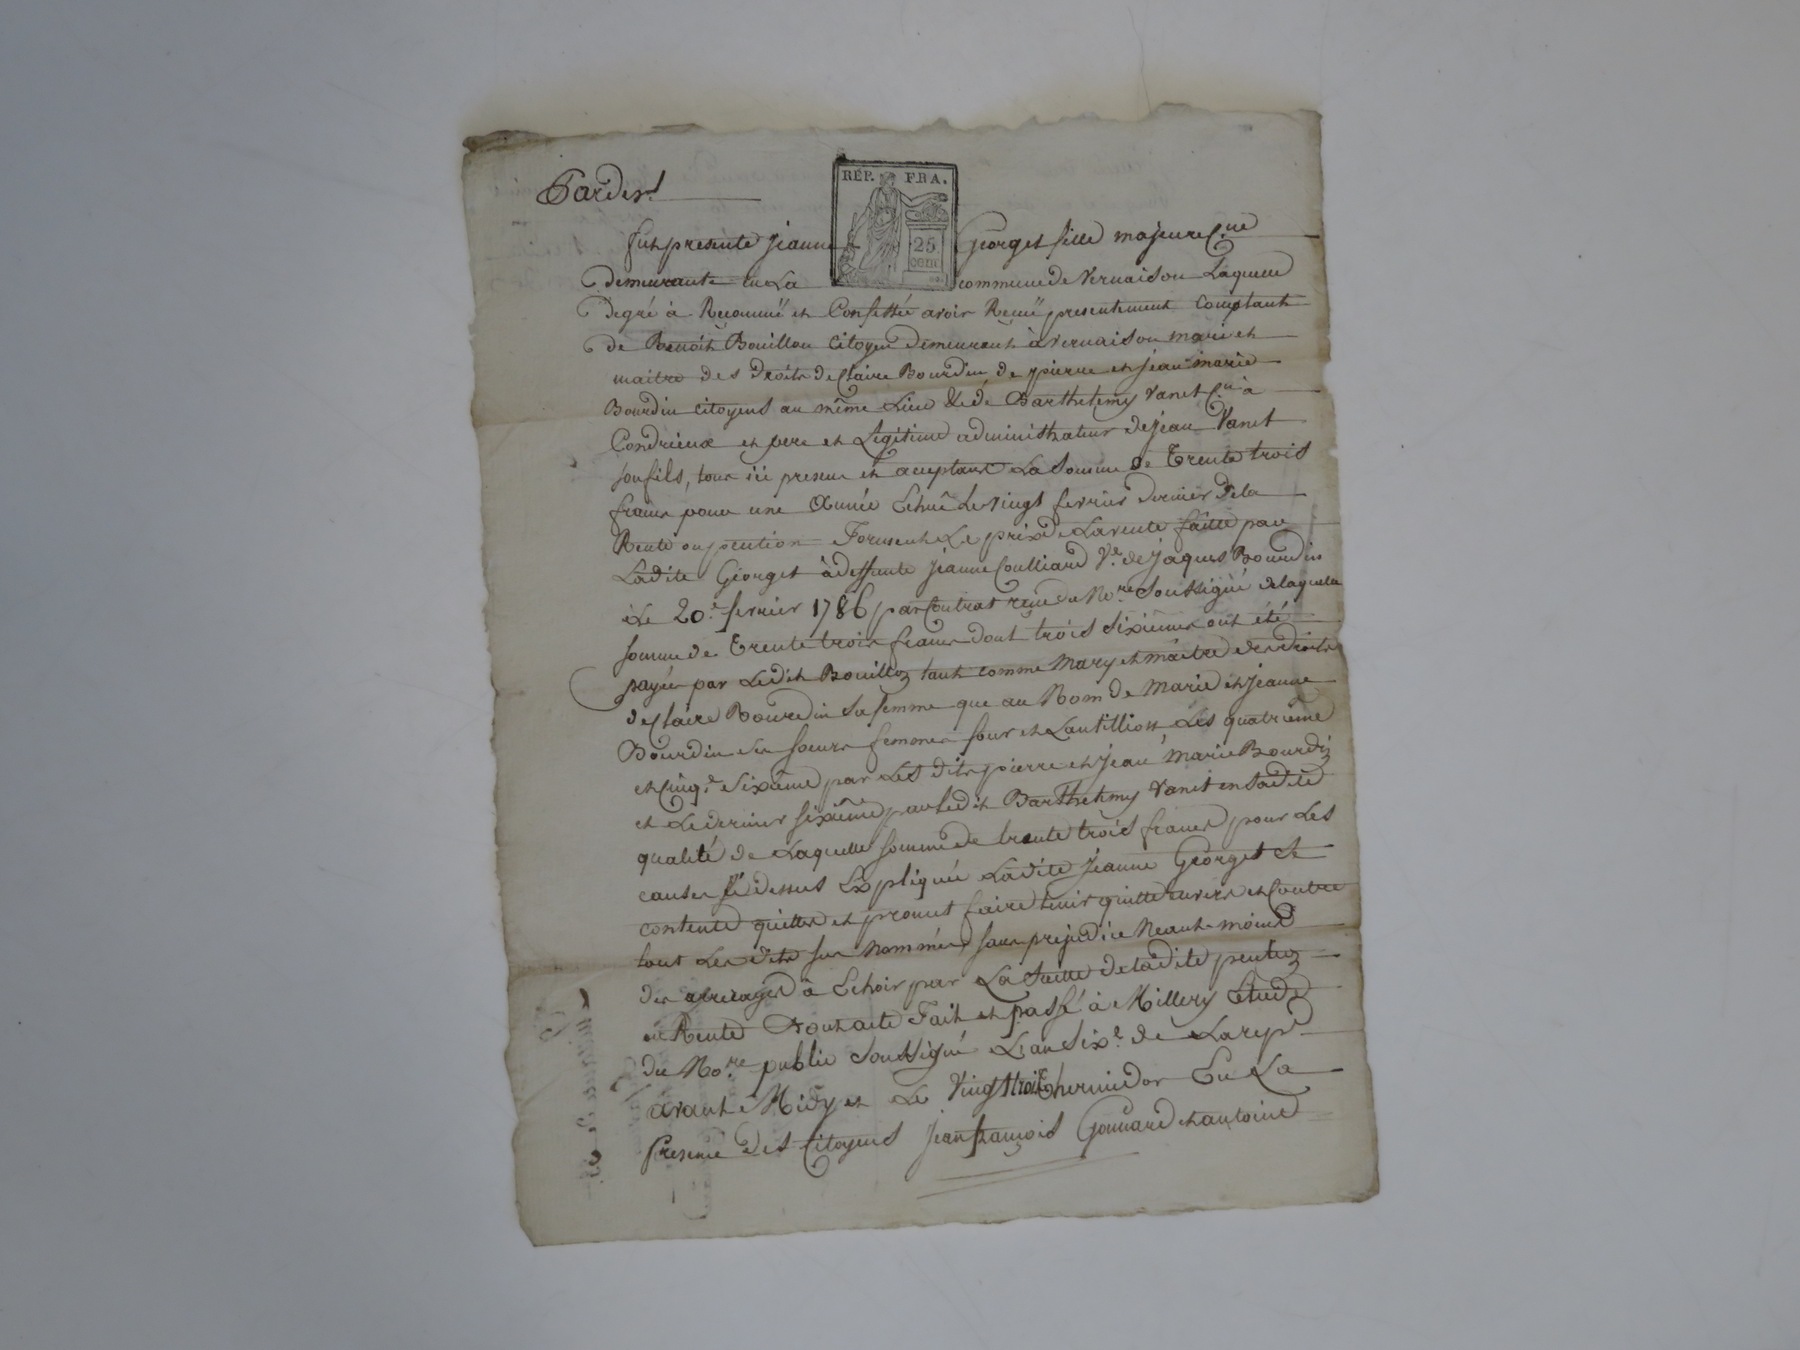 Pardevt
RÉP. FRA.
25
cent
fut presente jeanne Georget fille majeure Cne
demeurante en La commune de Vernaison Laquelle
degré à Reconnuë et Confessée avoir Recuë presentement comptant
de Benoît Bouillon Citoyen demeurant à vernaison mari et
maitre des droits de Claire Bourdin, de pierre et jean marie
Bourdin citoyens au même Lieu & de Barthelemy Vanet Cen à
Condrieux et pere et Légitime administrateur de jean Vanet
son fils, tous ici presens et acceptant La somme de Trente trois
francs pour une Année Echuë Le vingt fevrier dernier de la
Rente ou pention formant Le prix de La vente faitte par
Ladite Georget à deffunte jeanne Coulliard Ve de jaques Bourdin
Le 20e fevrier 1786 par Contrat reçu du Nore Soussigné de laquelle
somme de Trente trois francs dont trois Sixièmes ont été
payés par Ledit Bouillon tant comme Mary et maître des droits
de Claire Bourdin sa femme que au Nom de Marie et jeanne
Bourdin ses soeurs femmes four et Lantillion Les quatrième
et Cinqe Sixième par Les dits pierre et jean marie Bourdin
et Le dernier sixième par Ledit Barthelemy Vanet en sa dite
qualité de Laquelle somme de trente trois francs pour Les
causes ci dessus Expliquée Ladite jeanne Georget Se
contente quitte et promet faire tenir quitte envers et Contre
tout Les dits sus nommés, sans prejudice Neantmoins
des arrerages à Echoir par La suitte de ladite pention
ou Rente Dont acte Fait et passé à Millery Etude
du Nore public Soussigné L'an Sixe de La repe
avant Midy et Le Vingt trois thermidor En La
presence des Citoyens jean françois Gonnard et antoine